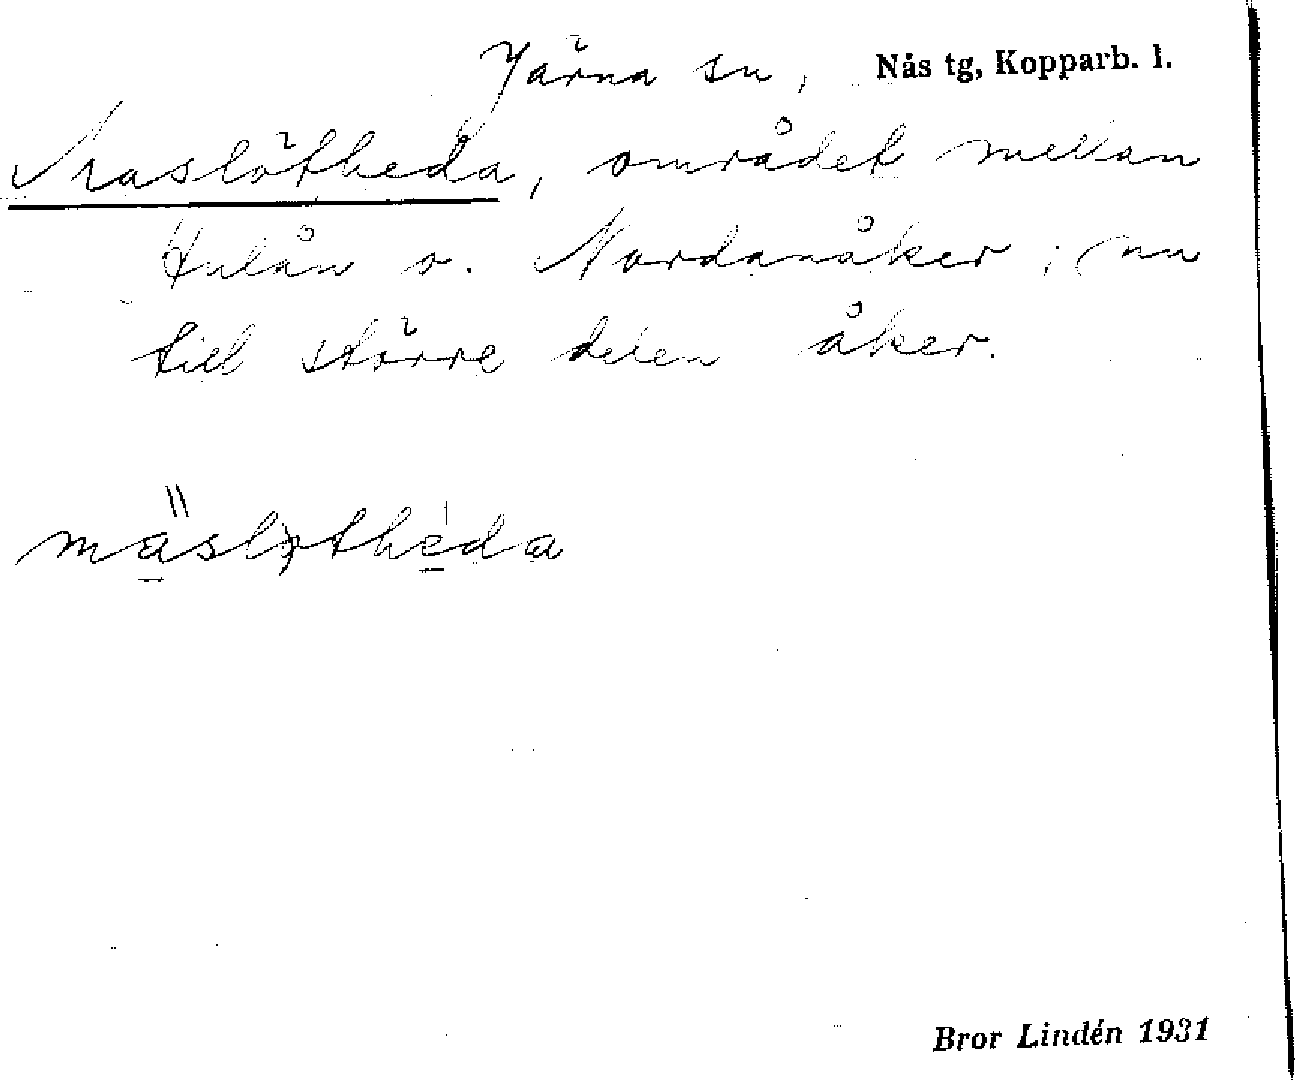 Järna sn, Nås tg, Kopparb. l.
Maslötheda, området mellan
Hulån o. Nordanåker; nu
till större delen åker.
Bror Lindén 1931